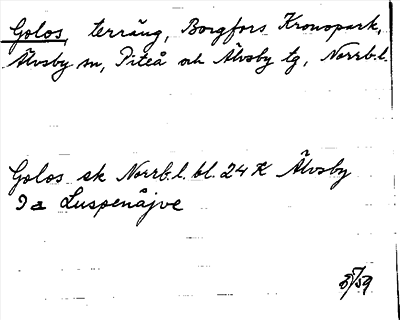 Golos, terräng, Borgfors Kronopark,
Älvsby sn, Piteå och Älvsby tg, Norrb.l.
Golos sk Norrb.l. bl. 24 K Älvsby
9 a Luspenåjve
/59